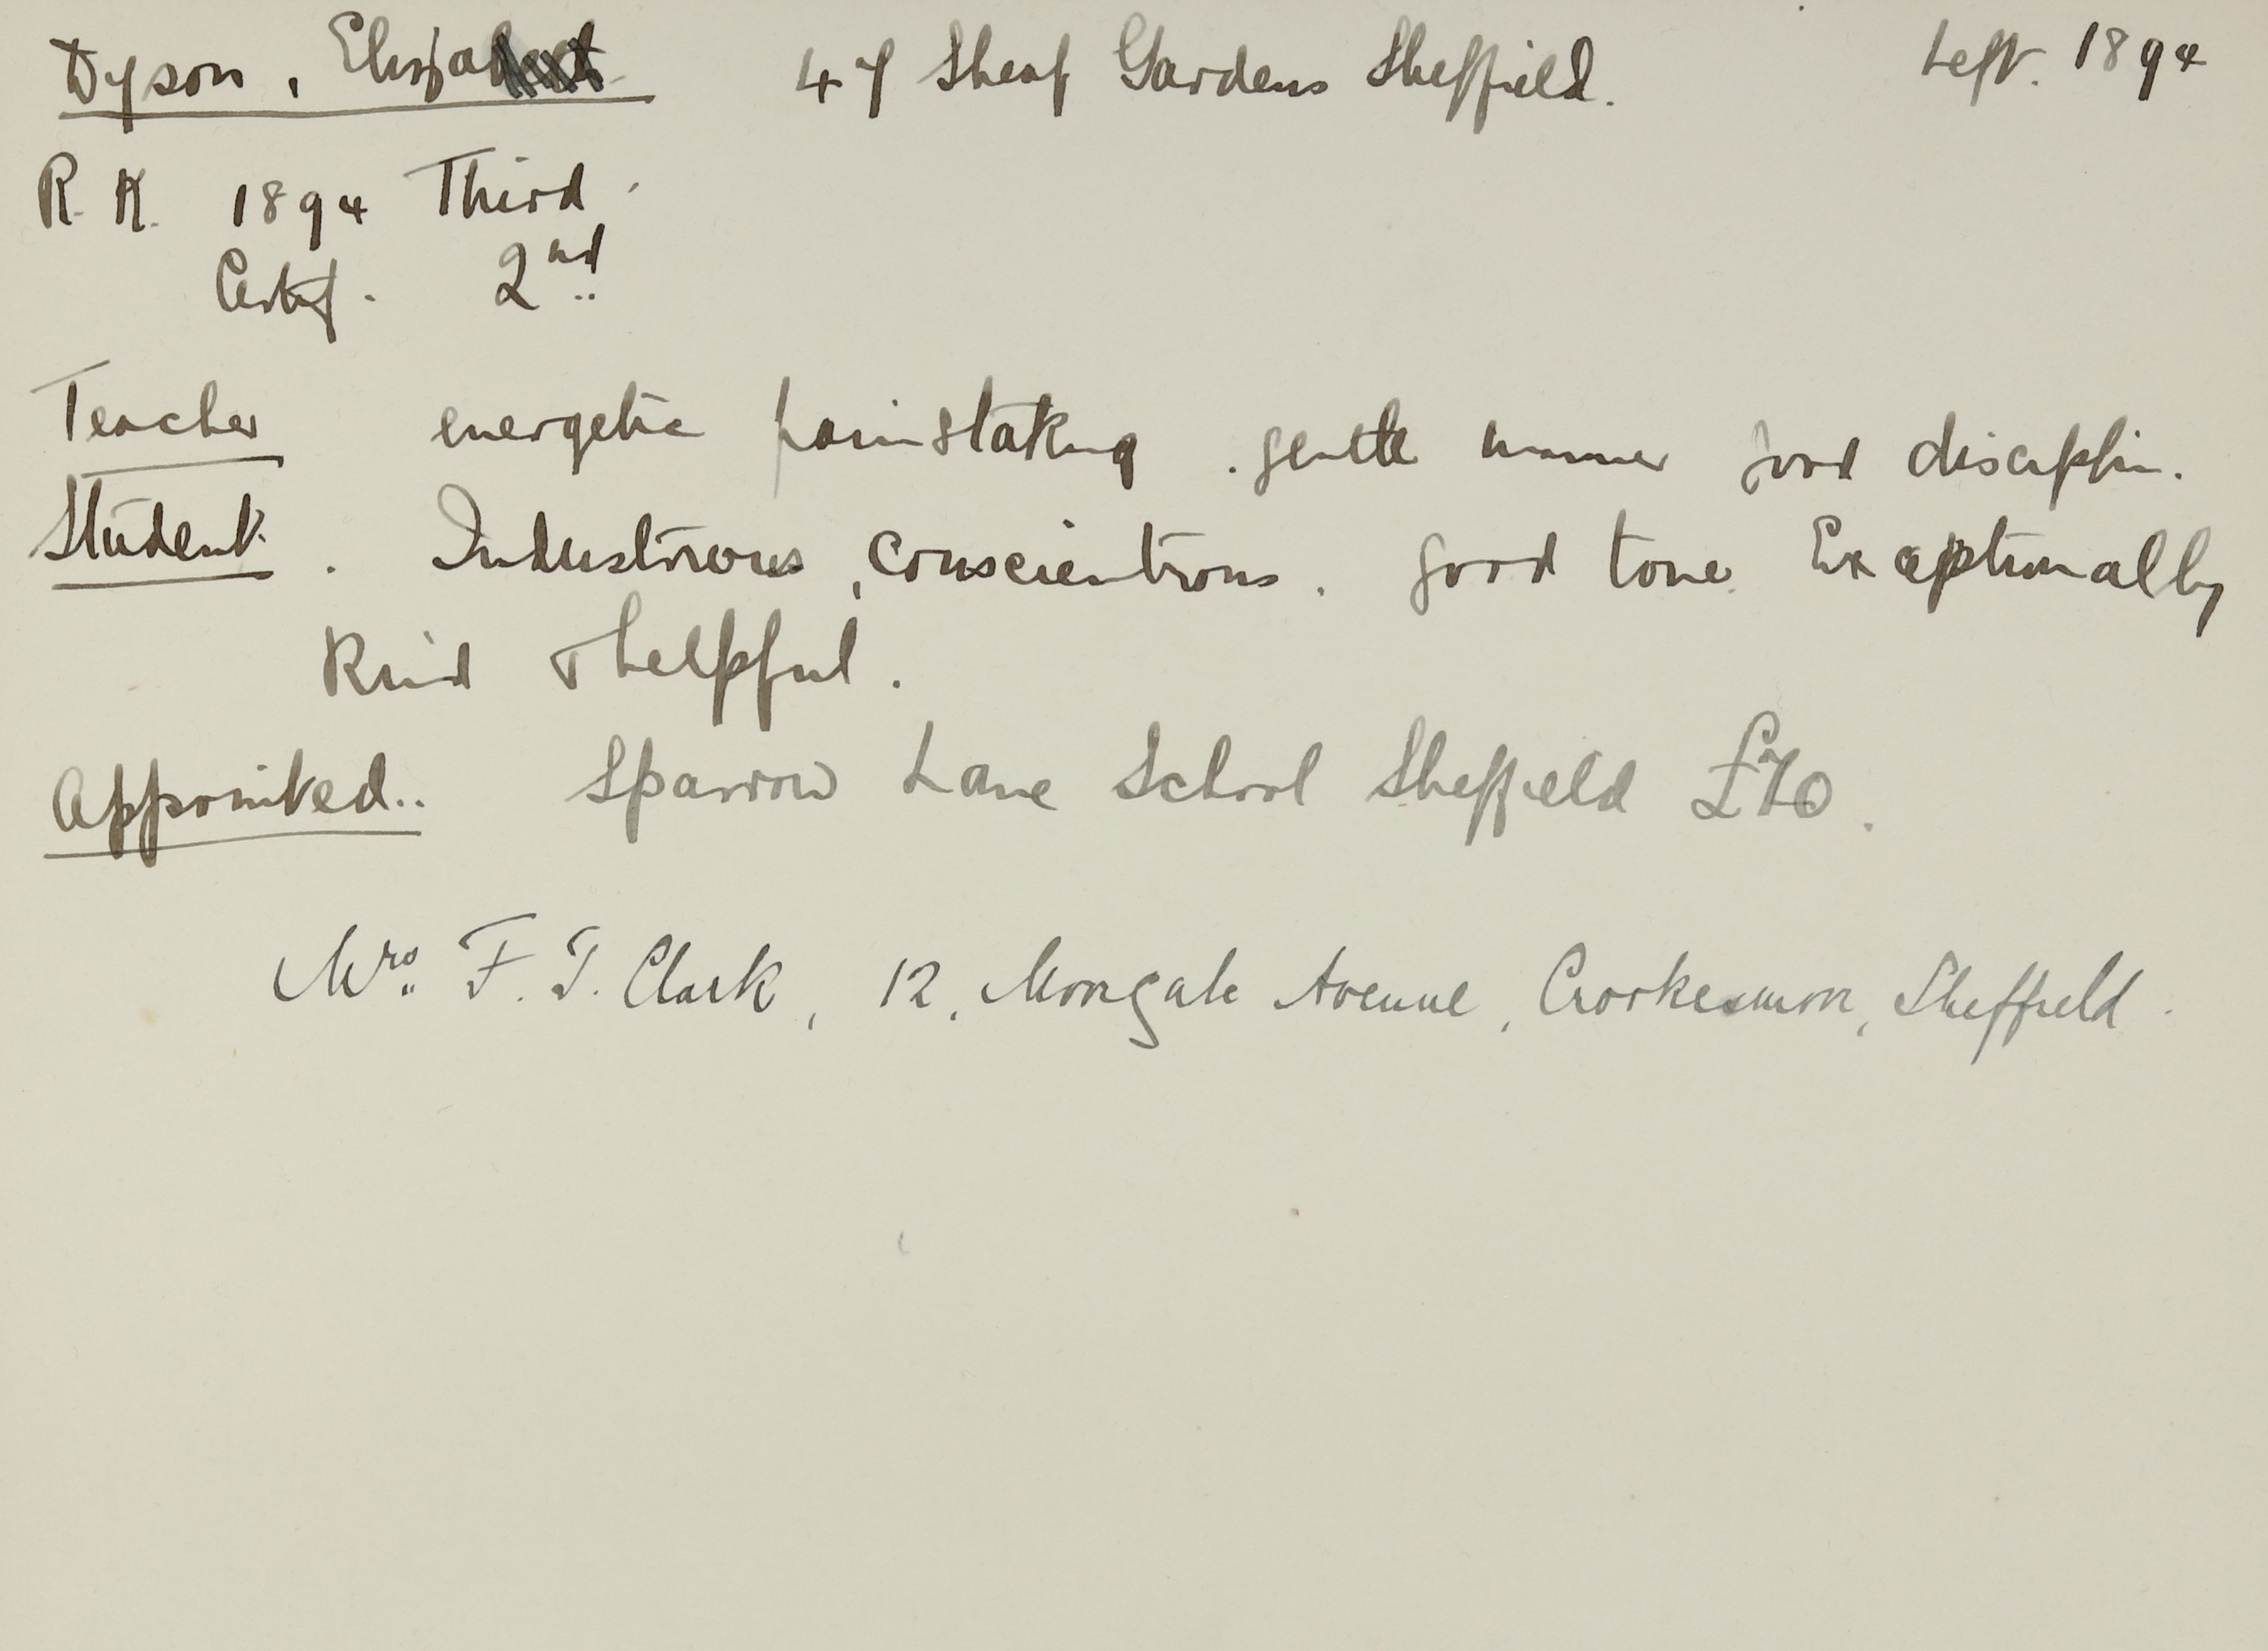 Dyson, Eliza 47 Sheaf Gardens Sheffield. Left. 1894
R. K. 1894 Third.
Certif. 2nd
Teacher energetic painstaking. gentle manner good disciplin.
Student. Industrious, conscientious. good tone. Exceptionally
Kind & helpful.
Appointed.. Sparrow Lane School Sheffield £70.
Mrs. F. T. Clark, 12, Moorgate Avenue, Crookesmoor, Sheffield.